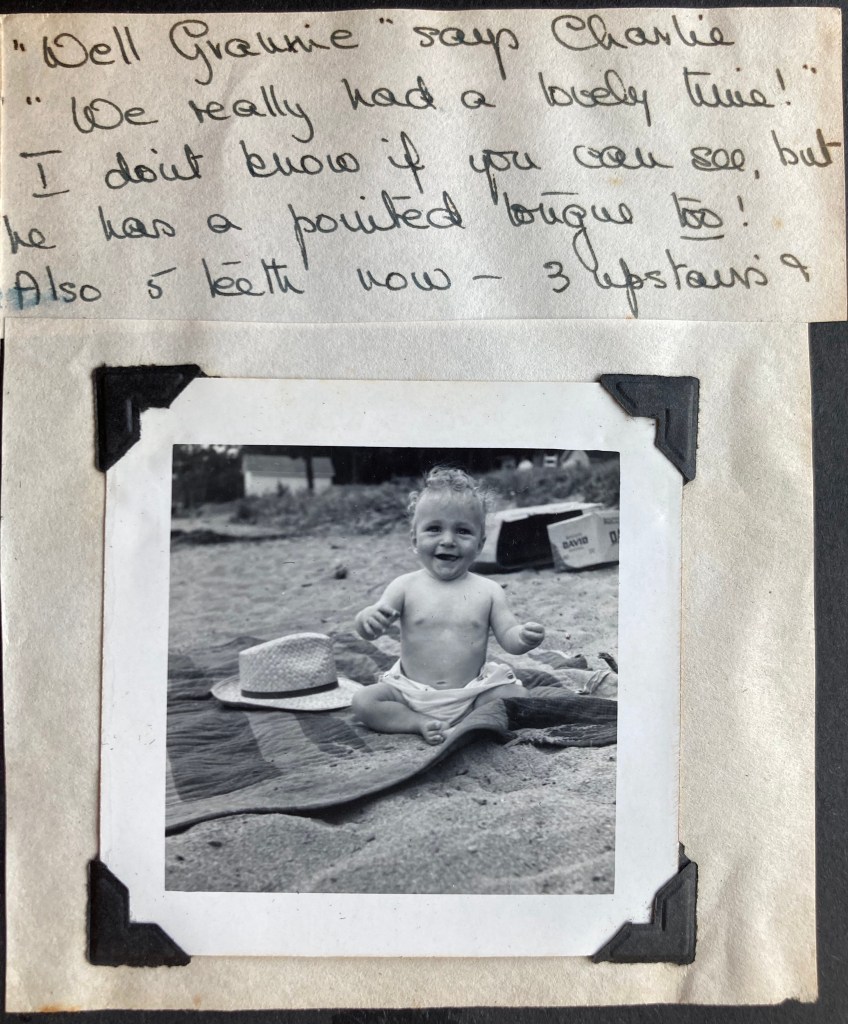 "Well Grannie" says Charlie
"We really had a lovely time!"
I don't know if you can see, but
he has a pointed tongue too!
Also 5 teeth now – 3 upstairs &
DAVID